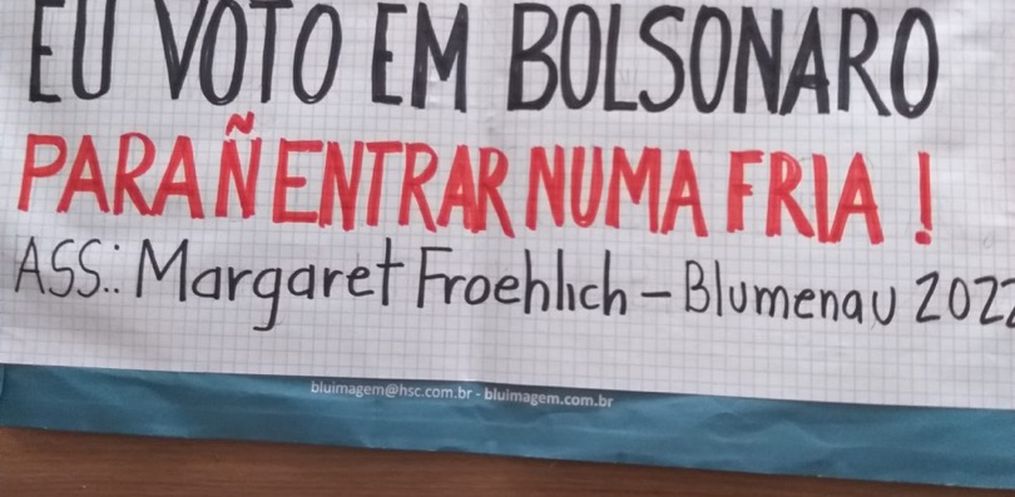 EU VOTO EM BOLSONARO
PARA Ñ ENTRAR NUMA FRIA !
ASS.: Margaret Froehlich - Blumenau 2022
bluimagem@hsc.com.br - bluimagem.com.br